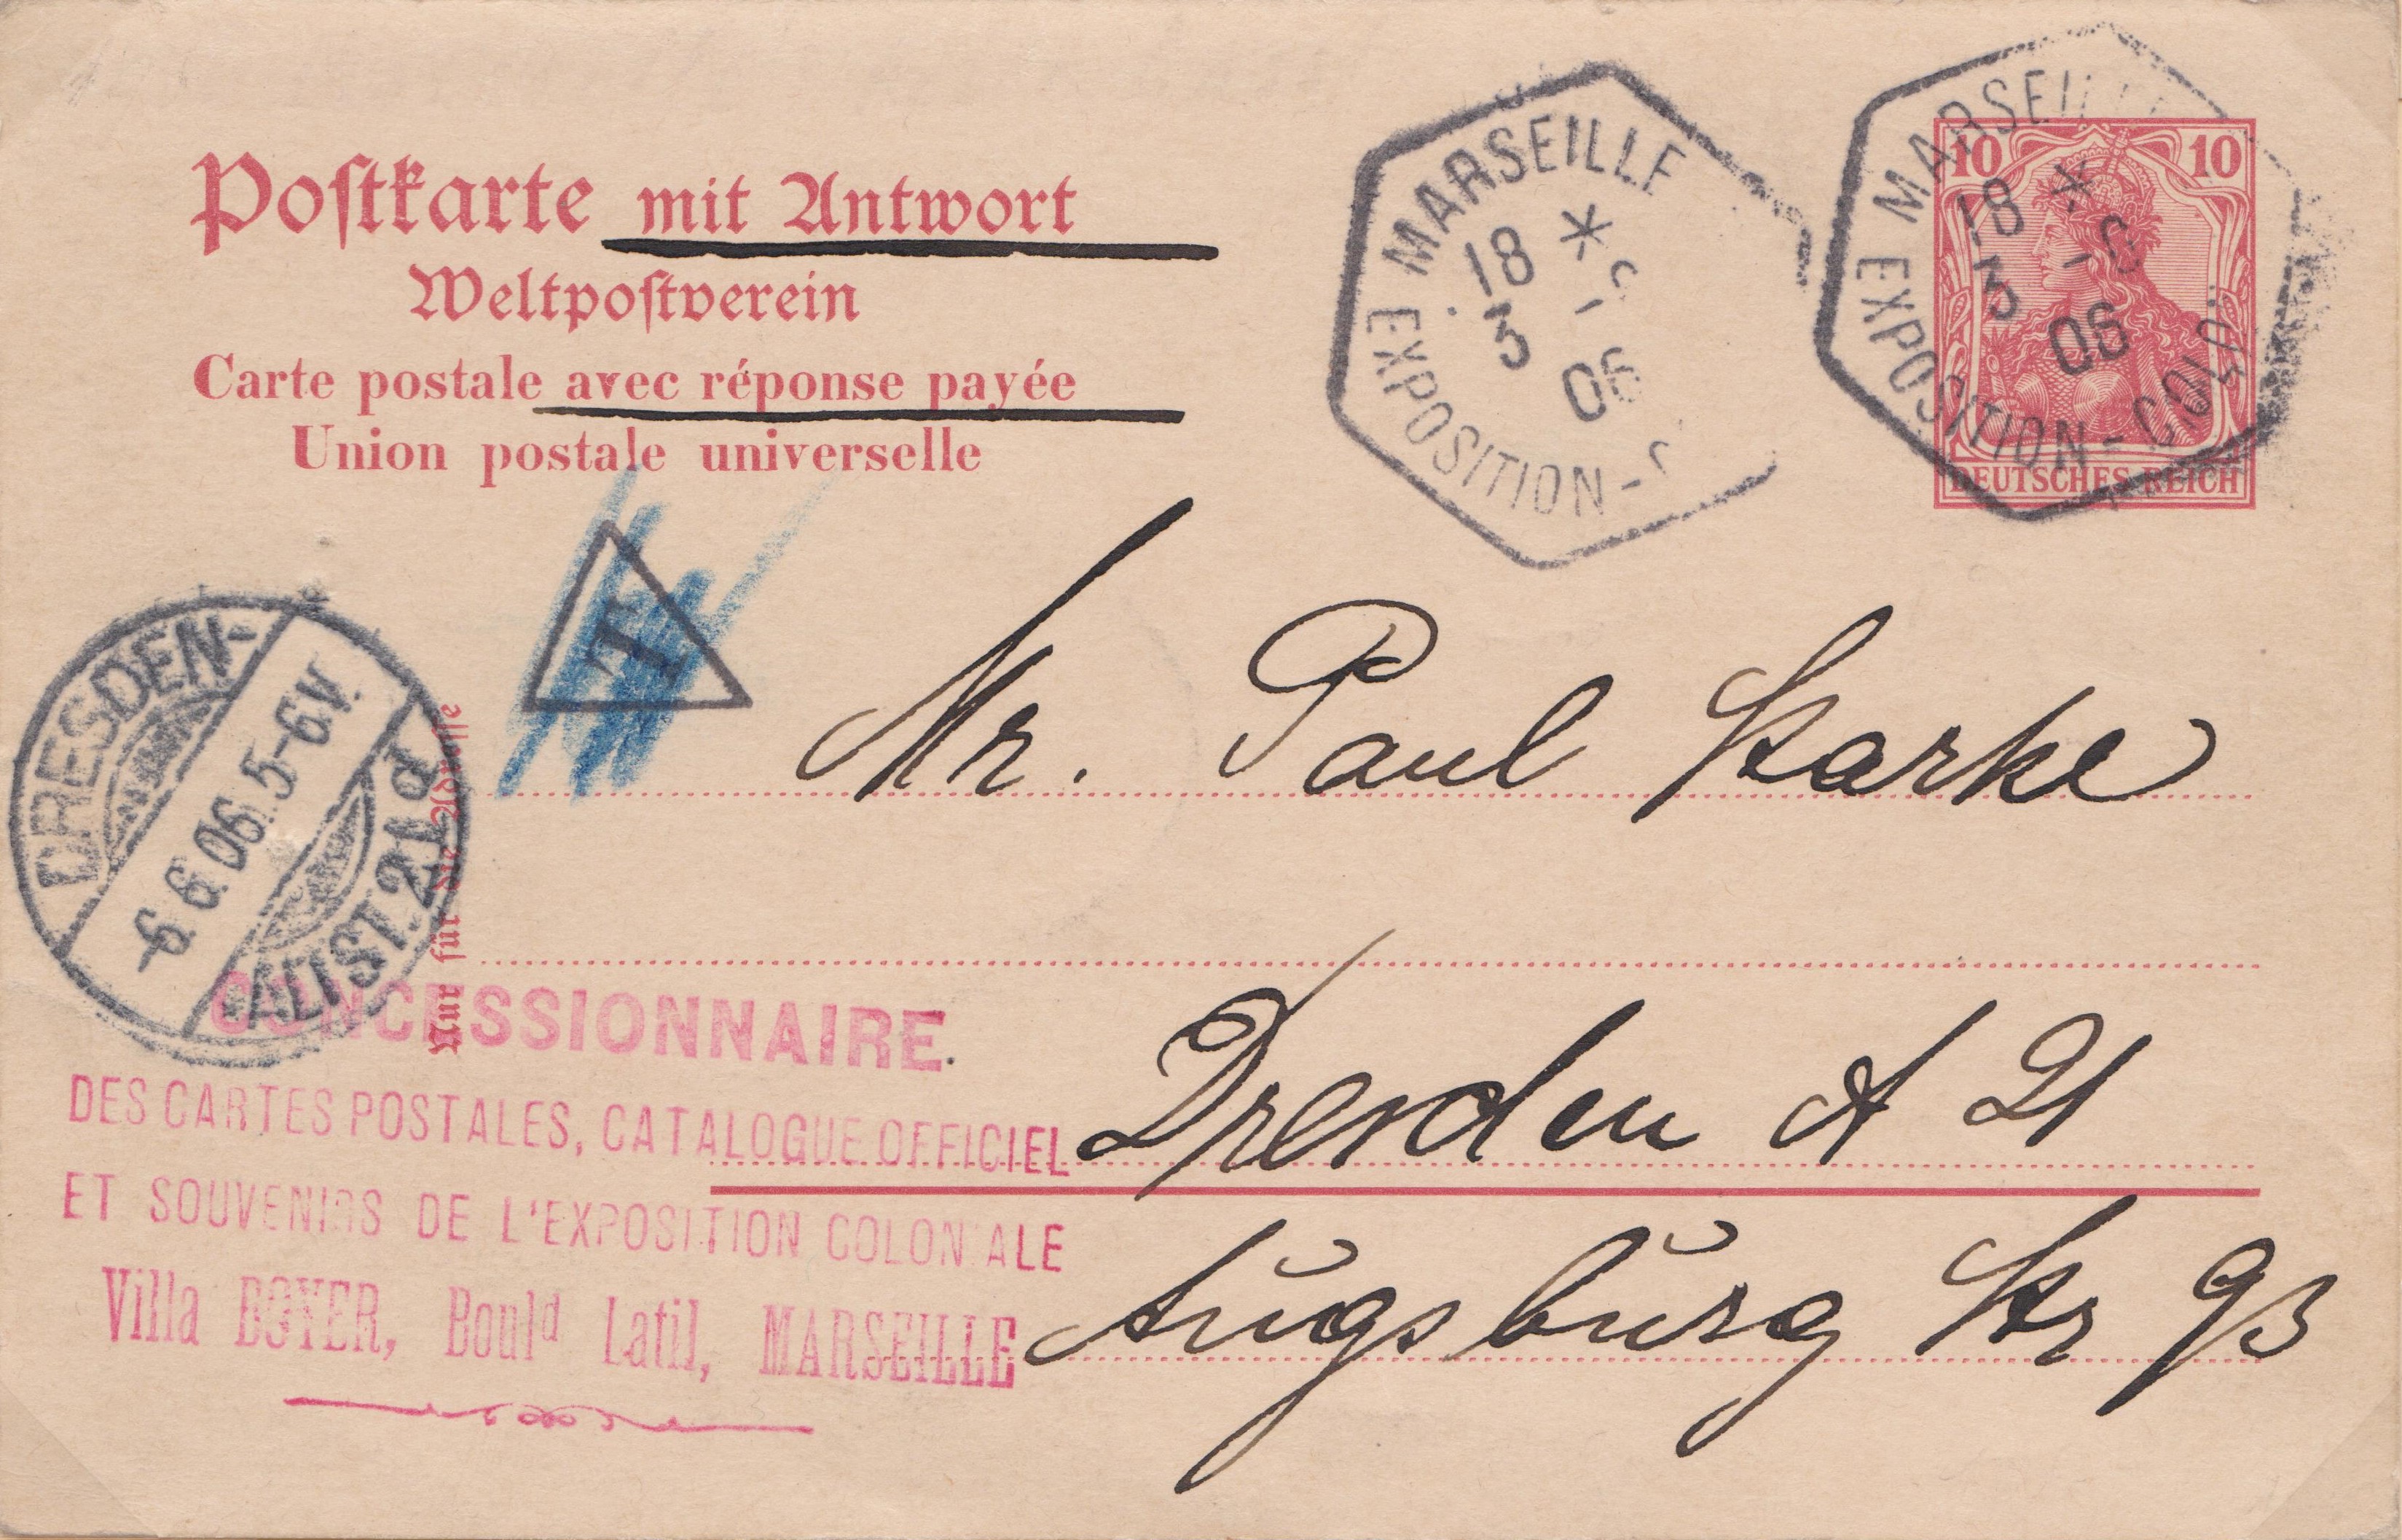 Postkarte mit Antwort
Weltpostverein
Carte postale avec réponse payée
Union postale universelle
MARSEILLE
EXPOSITION-
18 *
3 -
06
MARSEILLE
EXPOSITION-COLO
18 *
3 -6
06
10 10
DEUTSCHES REICH
T
DRESDEN-
-6.6.06. 5-6V.
ALTST. 21d
Nur für die Adresse
Mr. Paul Starke
Dresden A 21
Augsburg Str 93
CONCESSIONNAIRE
DES CARTES POSTALES, CATALOGUE OFFICIEL
ET SOUVENIRS DE L'EXPOSITION COLONIALE
Villa BOYER, Bould Latil, MARSEILLE